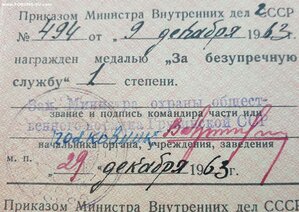 Приказом Министра Внутренних дел СССР
№ 494 от „9" декабря 1963 г.
награжден медалью „За безупречную
службу" 1 степени.
Зам. Министра охраны общест-
венного порядка ССР
звание и подпись командира части или
полковник
начальника органа, учреждения, заведения
м. п. „29" декабря 1963 г.
Приказом Министра Внутренних дел СССР